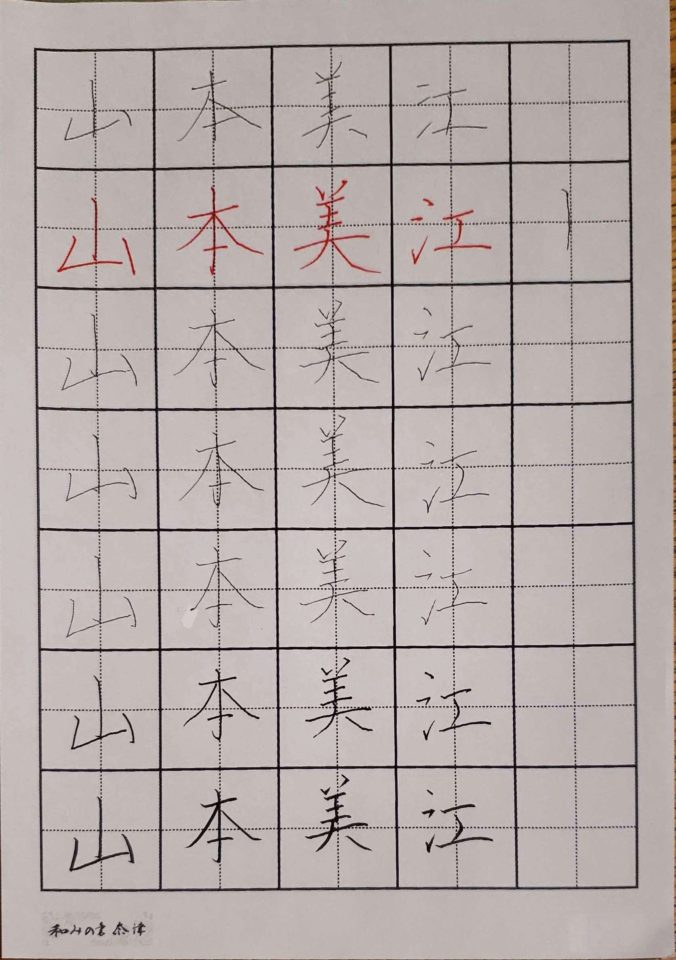 山本美江
山本美江
山本美江
山本美江
山本美江
山本美江
山本美江
和みの書 奈津